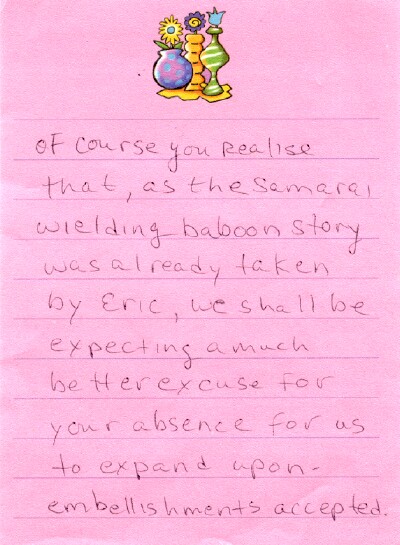 Of course you realise
that, as the Samarai
wielding baboon story
was already taken
by Eric, we shall be
expecting a much
better excuse for
your absence for us
to expand upon-
embellishments accepted.